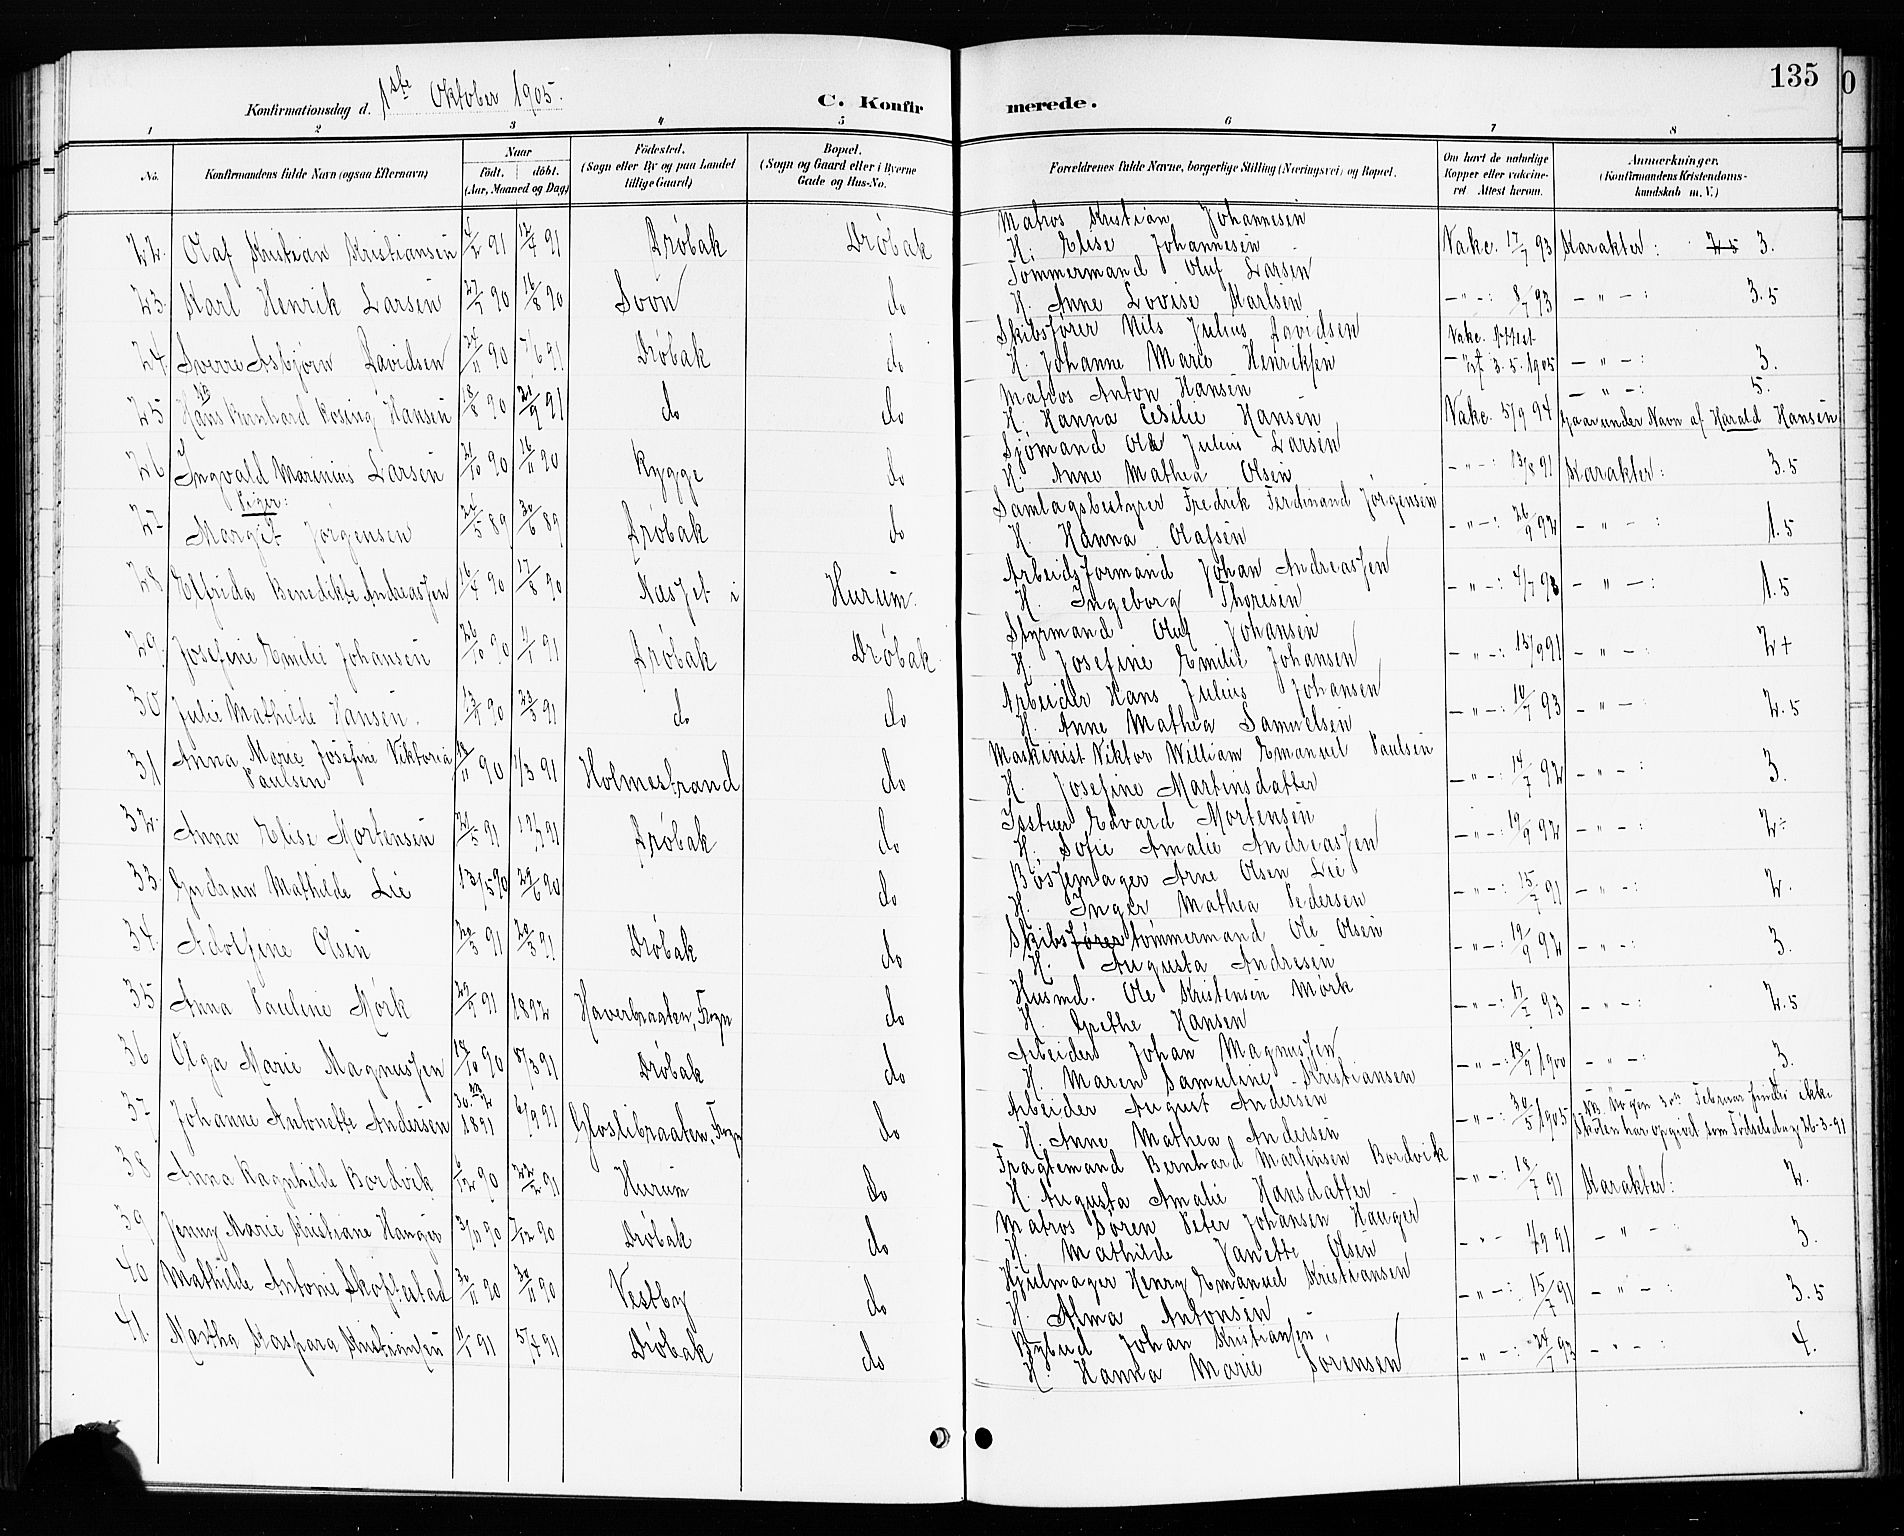 135
Konfirmationsdag d. 1ste Oktober 1905.
C. Konfirmerede.
1 2 3 4 5 6 7 8
No. | Konfirmandens fulde Navn (ogsaa Efternavn) | Naar født. døbt. (Aar, Maaned og Dag) | Fødested. (Sogn eller By og paa Landet tillige Gaard) | Bopæl. (Sogn og Gaard eller i Byerne Gade og Hus-No. | Forældrenes fulde Navne, borgerlige Stilling (Næringsvei) og Bopæl. | Om havt de naturlige Kopper eller vakcineret. Attest herom. | Anmærkninger. (Konfirmandens Kristendomskundskab m. V.)
22. Olaf Kristian Kristiansen | 91 | 12/4 91 | Drøbak | Drøbak | Matros Kristian Johannesen | Vakc. 17/7 93 | Karakter: 2.5 3.
H. Elise Johannesen
23. Karl Henrik Larsen | 27/7 90 | 16/8 90 | Soon | do | Tømmermand Oluf Larsen | – " – : 8/7 93 | – " – : 3.5
H. Anne Lovise Karlsen
24. Sverre Asbjørn Davidsen | 24/11 90 | 7/6 91 | Drøbak | do | Skibsfører Nils Julius Davidsen | Vakc. Attest 3.5.1905 | – " – : 3.
H. Johanne Marie Henriksen
25 Hans Bernhard Rosing Hansen | 18/8 90 | 21/9 91 | do | do | Matros Anton Hansen | Vakc. 5/9 94 | – " – : 5.
H. Hanna Cesilie Hansen | gaar under Navn af Harald Hansen
26 Ingvald Marinius Larsen | 21/10 90 | 16/11 90 | Rygge | do | Sjømand Ole Julius Larsen | – " – : 13/8 91 | Karakter: 3.5
H. Anne Mathea Olsen
Piger:
27 Margit Jørgensen | 26/5 89 | 30/6 89 | Drøbak | do | Samlagsbestyrer Fredrik Ferdinand Jørgensen | – " – : 26/9 92 | – " – : 1.5
H. Hanna Olafsen
28. Elfrida Benedikte Andreassen | 90 | 17/8 90 | Næsset i | Hurum. | Arbeidsformand Johan Andreassen | – " – : 4/7 93 | – " – : 1.5
H. Ingeborg Thoresen
29. Josefine Emilie Johansen | 26/10 90 | 1/1 91 | Drøbak | Drøbak. | Styrmand Oluf Johansen | – " – : 15/9 91 | – " – : 2+
H. Josefine Emilie Johansen
30 Julie Mathilde Hansen. | 90 | 91 | do | do | Arbeider Hans Julius Johansen | – " – : 10/7 93 | – " – : 2.5
H. Anne Mathea Samuelsen
31 Anna Marie Josefine Viktoria Paulsen | 11 90 | 1/3 91 | Holmestrand | do | Maskinist Viktor William Emanuel Paulsen | – " – : 14/7 92 | – " – : 3.
H. Josefine Martinsdatter
32. Anna Elise Mortensen | 21/5 91 | 91 | Drøbak | do | Edvard Mortensen | – " – : 19/9 92 | – " – : 2÷
H. Sofie Amalie Andreassen
33. Gudrun Mathilde Lie | 13/5 90 | 29/6 90 | do | Bøssemager Arne Olsen Lie | – " – : 15/7 91 | – " – : 2.
H. Inger Mathea Pedersen
34. Adolfine Olsen | 91 | 91 | Drøbak | do | Skibsfører tømmermand Ole Olsen | – " – : 19/9 92 | – " – : 3.
H. Augusta Andresen
35 Anna Pauline Mørk | 91 | 1892 | Haverbraaten, Frogn | do | Husmd. Ole Kristensen Mørk | – " – : 17/7 93 | – " – : 2.5
H. Grethe Hansen
36 Olga Marie Magnussen | 18/10 90 | 8/3 91 | Drøbak | do | Arbeider Johan Magnussen | – " – : 18/9 1900 | – " – : 3.
H. Maren Samuline Kristiansen
37 Johanne Antonette Andersen | 30. 1891 | 6/9 91 | Gloslibraaten, Frogn | do | Arbeider August Andersen | – " – : 30/5 1905 | NB. 30te Februar findes ikke
H. Anne Mathea Andersen | Skolen har opgivet som Fødselsdag 26-3-91
38 Anna Ragnhilde Bordvik | 6/12 90 | 22/2 91 | Hurum | do | Fragtemand Bernhard Martensen Bordvik | – " – : 18/7 91 | Karakter: 2.
H. Augusta Amalie Hansdatter
39 Jenny Marie Kristiane Hauger | 3/11 90 | 7/12 90 | Drøbak | do | Matros Søren Peter Johansen Hauger | – " – 91 | – " – : 3.
H. Mathilde Janette Olsen
40 Mathilde Antonie Skoftestad | 30/11 90 | 30/11 90 | Vestby | do | Hjulmager Henry Emanuel Kristiansen | – " – : 15/7 91 | – " – : 3.5
H. Alma Antonsen
41. Martha Kaspara Kristiansen | 91 | 5/4 91 | Drøbak | do | Bybud Johan Kristiansen. | – " – : 24/7 93 | – " – : 4.
H. Hanna Marie Sørensen